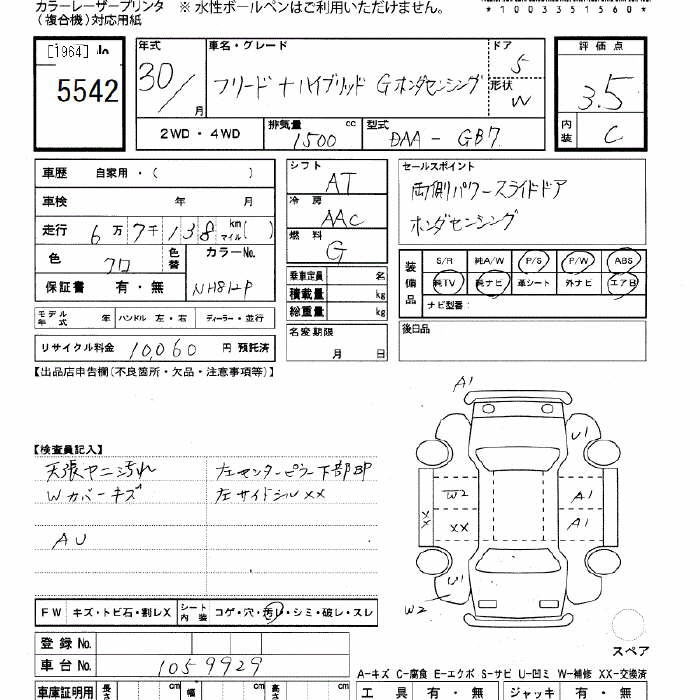 カラーレーザープリンタ ※ 水性ボールペンはご利用いただけません。
(複合機)対応用紙
*1003351560*
[1964]
5542
年式 車名・グレード ドア 評価点
30/ 月 フリード + ハイブリッド G ホンダセンシング 5 3.5
形状 W
2WD・4WD 排気量 1500 cc 型式 DAA - GB7 内装 C
車歴 自家用・( ) シフト AT セールスポイント
両側パワースライドドア
車検 年 月 冷房 AAC ホンダセンシング
走行 6万7千138 km マイル( ) 燃料 G
色 クロ 色替 カラーNo. NH812P
装備品 S/R 純A/W P/S P/W ABS
純TV 純ナビ 革シート 外ナビ エアB
ナビ型番:
保証書 有・無
乗車定員 名
積載量 kg
総重量 kg
モデル年式 年 ハンドル 左・右 ディーラー・並行
名変期限 月 日
後日品
リサイクル料金 10,060 円 預託済
【出品店申告欄(不良箇所・欠品・注意事項等)】
A1
U1
【検査員記入】
天張ヤニ汚れ 左センターピラー下部BP
Wカバーキズ 左サイドシルXX
AU
W2 A1
XX XX A1
U1
W2
FW キズ・トビ石・割レX シート内装 コゲ・穴・汚レ・シミ・破レ・スレ
スペア
登録No.
車台No. 1059929
A-キズ C-腐食 E-エクボ S-サビ U-凹ミ W-補修 XX-交換済
車庫証明用 長さ cm 幅 cm 高さ cm 工具 有・無 ジャッキ 有・無